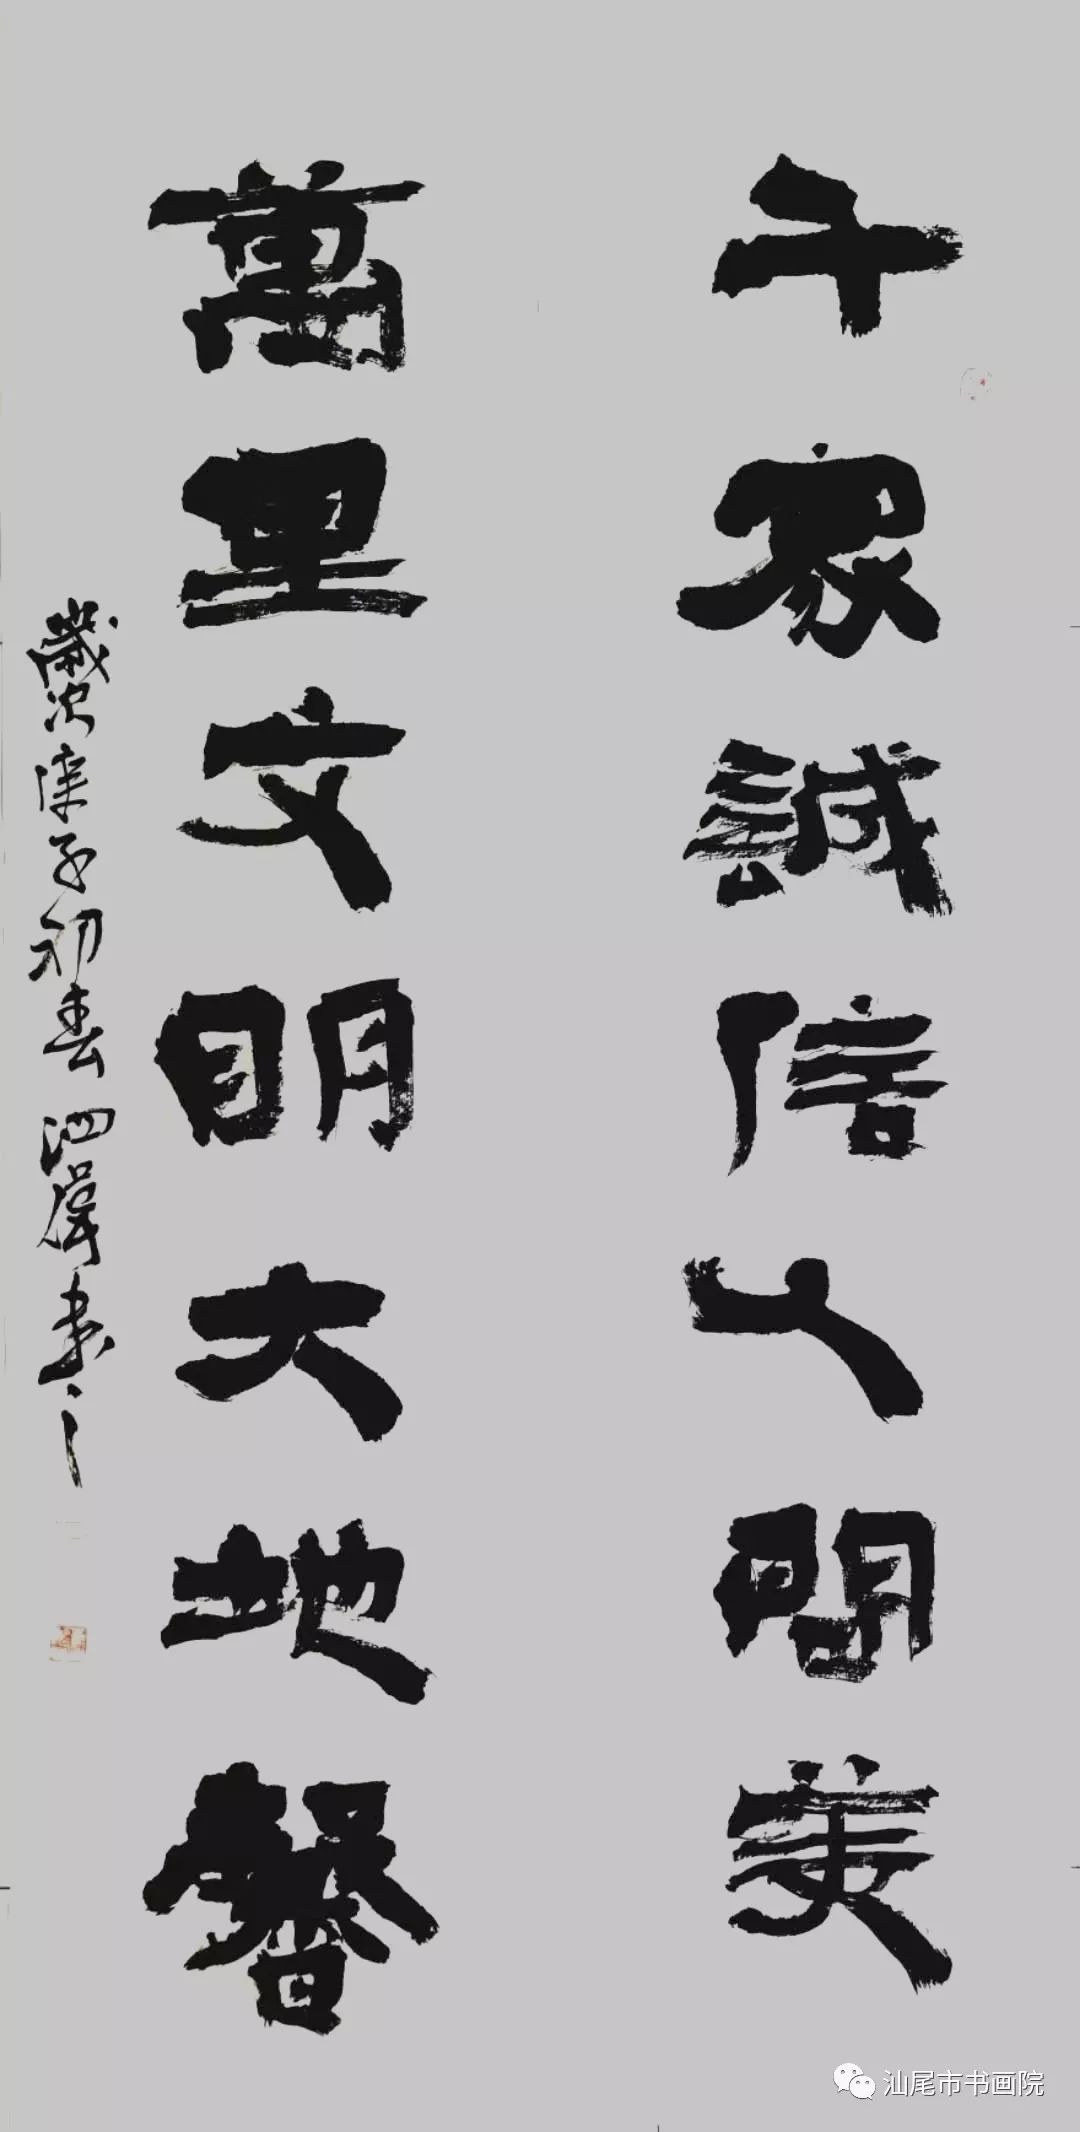 千家誠信人間美
萬里文明大地馨
歲次庚子初春泗偉書之
汕尾市书画院